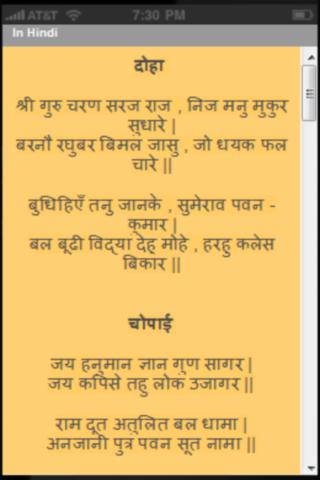 AT&T 7:30 PM
In Hindi
दोहा
श्री गुरु चरण सरज राज , निज मनु मुकुर
सुधारे |
बरनौ रघुबर बिमल जासु , जो धयक फल
चारे ||
बुधिहिएँ तनु जानके , सुमेराव पवन -
कुमार |
बल बूढी विद्या देहु मोहे , हरहु कलेस
बिकार ||
चोपाई
जय हनुमान ज्ञान गुण सागर |
जय कपिसे तहु लोक उजागर ||
राम दूत अतुलित बल धामा |
अनजानी पुत्र पवन सूत नामा ||